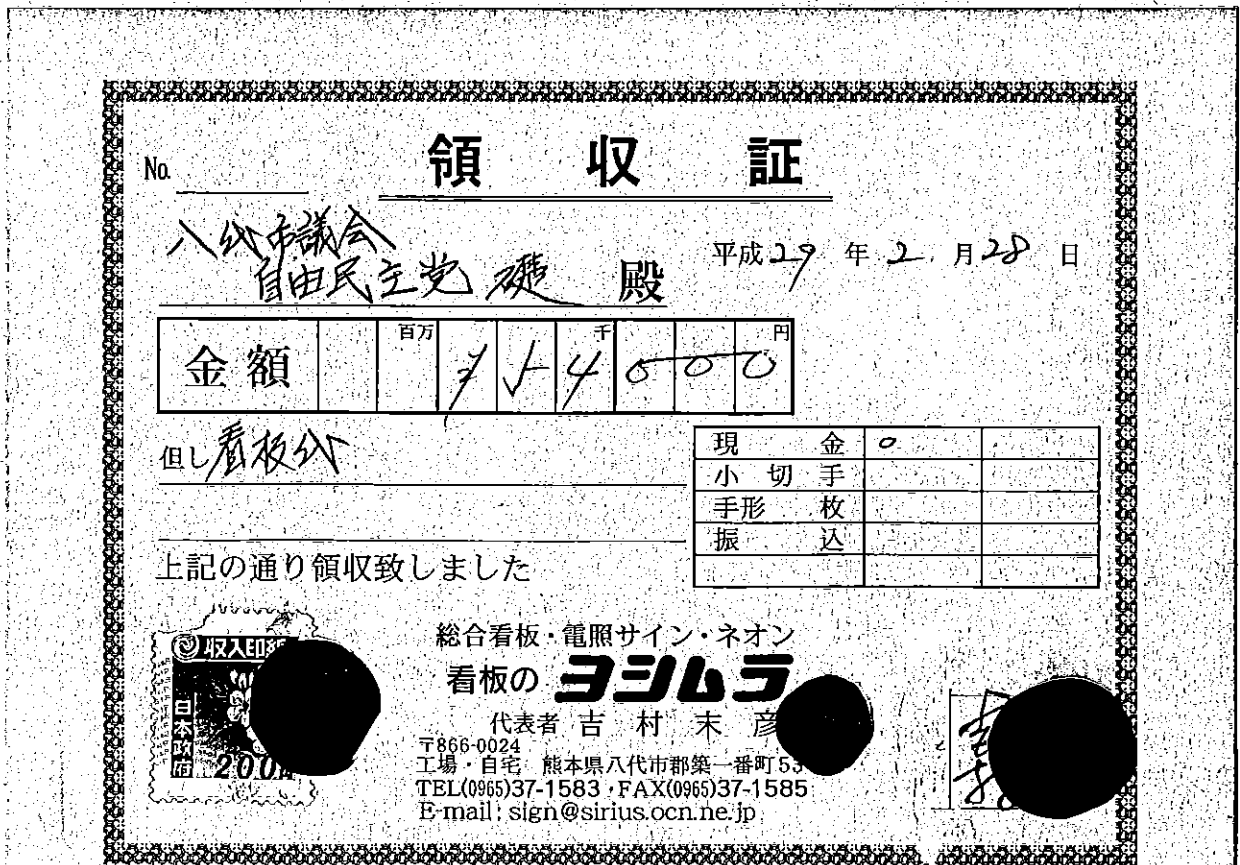 領収証
No.
八代市議会
自由民主党 礎 殿
平成29年2月28日
百万 千 円
金額 ¥54000
但し 看板代
現金 o
小切手
手形 枚
振込
上記の通り領収致しました
収入印紙
日本政府
200円
総合看板・電照サイン・ネオン
看板の ヨシムラ
代表者 吉村末彦
〒866-0024
工場・自宅 熊本県八代市郡築一番町53
TEL(0965)37-1583・FAX(0965)37-1585
E-mail: sign@sirius.ocn.ne.jp